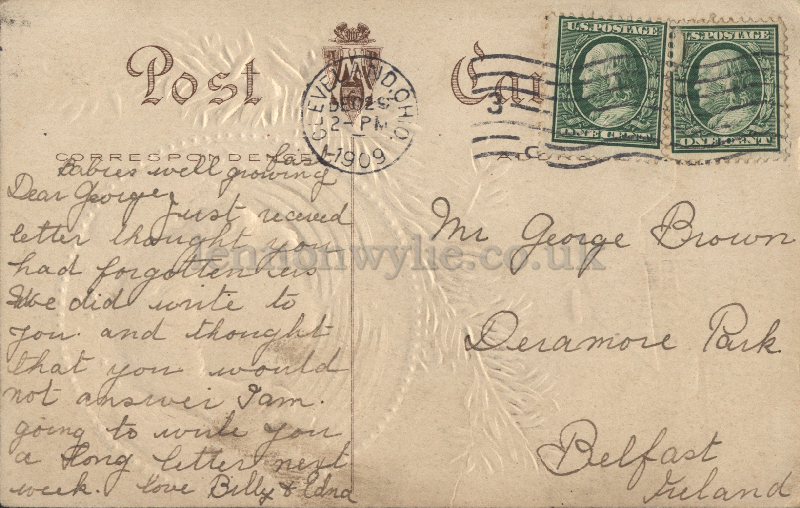 Post Car
U.S. POSTAGE
ONE CENT
U.S. POSTAGE
ONE CENT
CLEVELAND, OHIO
DEC 28
2-PM
1909
3
C
CORRESPONDENCE
Babies well growing fast
Dear George,
Just received
letter thought you
had forgotten us
We did write to
you and thought
that you would
not answer I am.
going to write you
a long letter next
week. love Billy & Edna
Mr George Brown
Deramore Park
Belfast
Ireland
lennonwylie.co.uk